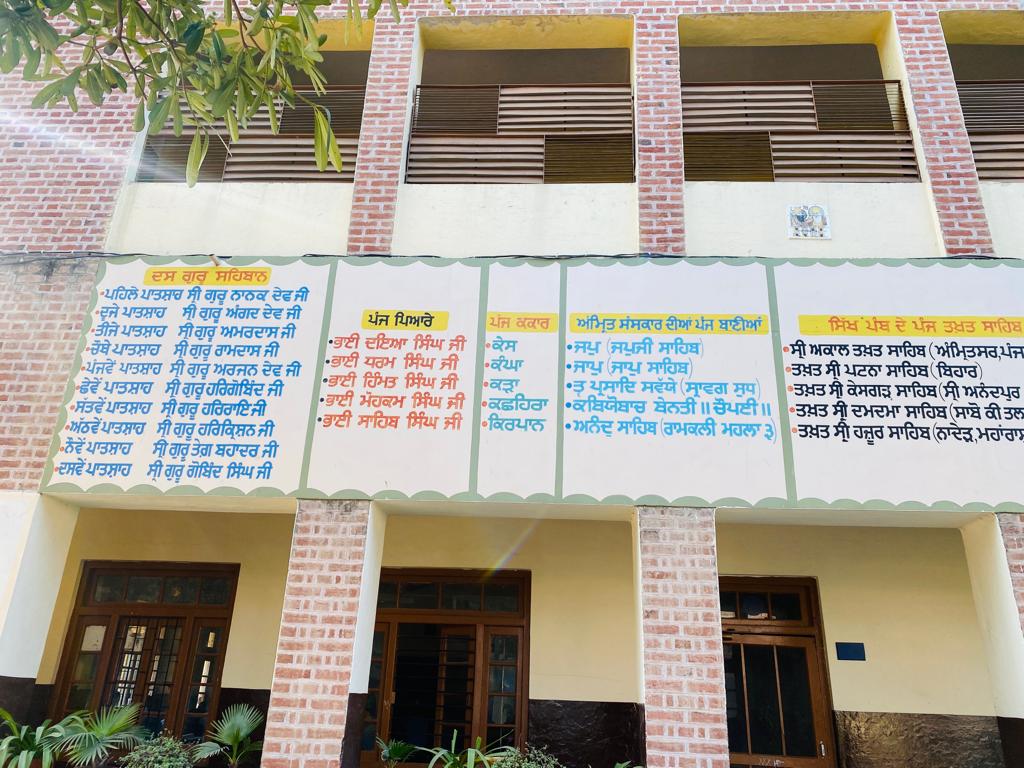 ਦਸ ਗੁਰੂ ਸਹਿਬਾਨ
•ਪਹਿਲੇ ਪਾਤਸ਼ਾਹ ਸ੍ਰੀ ਗੁਰੂ ਨਾਨਕ ਦੇਵ ਜੀ
•ਦੂਜੇ ਪਾਤਸ਼ਾਹ ਸ੍ਰੀ ਗੁਰੂ ਅੰਗਦ ਦੇਵ ਜੀ
•ਤੀਜੇ ਪਾਤਸ਼ਾਹ ਸ੍ਰੀ ਗੁਰੂ ਅਮਰਦਾਸ ਜੀ
•ਚੌਥੇ ਪਾਤਸ਼ਾਹ ਸ੍ਰੀ ਗੁਰੂ ਰਾਮਦਾਸ ਜੀ
•ਪੰਜਵੇਂ ਪਾਤਸ਼ਾਹ ਸ੍ਰੀ ਗੁਰੂ ਅਰਜਨ ਦੇਵ ਜੀ
•ਛੇਵੇਂ ਪਾਤਸ਼ਾਹ ਸ੍ਰੀ ਗੁਰੂ ਹਰਿਗੋਬਿੰਦ ਜੀ
•ਸੱਤਵੇਂ ਪਾਤਸ਼ਾਹ ਸ੍ਰੀ ਗੁਰੂ ਹਰਿਰਾਇ ਜੀ
•ਅੱਠਵੇਂ ਪਾਤਸ਼ਾਹ ਸ੍ਰੀ ਗੁਰੂ ਹਰਿਕ੍ਰਿਸ਼ਨ ਜੀ
•ਨੌਵੇਂ ਪਾਤਸ਼ਾਹ ਸ੍ਰੀ ਗੁਰੂ ਤੇਗ਼ ਬਹਾਦਰ ਜੀ
•ਦਸਵੇਂ ਪਾਤਸ਼ਾਹ ਸ੍ਰੀ ਗੁਰੂ ਗੋਬਿੰਦ ਸਿੰਘ ਜੀ
ਪੰਜ ਪਿਆਰੇ
•ਭਾਈ ਦਇਆ ਸਿੰਘ ਜੀ
•ਭਾਈ ਧਰਮ ਸਿੰਘ ਜੀ
•ਭਾਈ ਹਿੰਮਤ ਸਿੰਘ ਜੀ
•ਭਾਈ ਮੋਹਕਮ ਸਿੰਘ ਜੀ
•ਭਾਈ ਸਾਹਿਬ ਸਿੰਘ ਜੀ
ਪੰਜ ਕਕਾਰ
•ਕੇਸ
•ਕੰਘਾ
•ਕੜਾ
•ਕਛਹਿਰਾ
•ਕਿਰਪਾਨ
ਅੰਮ੍ਰਿਤ ਸੰਸਕਾਰ ਦੀਆਂ ਪੰਜ ਬਾਣੀਆਂ
•ਜਪੁ (ਜਪੁਜੀ ਸਾਹਿਬ)
•ਜਾਪੁ (ਜਾਪੁ ਸਾਹਿਬ)
•ਤ੍ਵ ਪ੍ਰਸਾਦਿ ਸਵੱਯੇ (ਸ੍ਰਾਵਗ ਸੁਧ)
•ਕਬਿਯੋਬਾਚ ਬੇਨਤੀ ॥ ਚੌਪਈ ॥
•ਅਨੰਦੁ ਸਾਹਿਬ (ਰਾਮਕਲੀ ਮਹਲਾ ੩)
ਸਿੱਖ ਪੰਥ ਦੇ ਪੰਜ ਤਖ਼ਤ ਸਾਹਿਬ
•ਸ੍ਰੀ ਅਕਾਲ ਤਖ਼ਤ ਸਾਹਿਬ (ਅੰਮ੍ਰਿਤਸਰ,ਪੰਜ
•ਤਖ਼ਤ ਸ੍ਰੀ ਪਟਨਾ ਸਾਹਿਬ (ਬਿਹਾਰ)
•ਤਖ਼ਤ ਸ੍ਰੀ ਕੇਸਗੜ ਸਾਹਿਬ (ਸ੍ਰੀ ਅਨੰਦਪੁਰ
•ਤਖ਼ਤ ਸ੍ਰੀ ਦਮਦਮਾ ਸਾਹਿਬ (ਸਾਬੋ ਕੀ ਤਲ
•ਤਖ਼ਤ ਸ੍ਰੀ ਹਜ਼ੂਰ ਸਾਹਿਬ (ਨਾਂਦੇੜ,ਮਹਾਂਰਾਸ਼